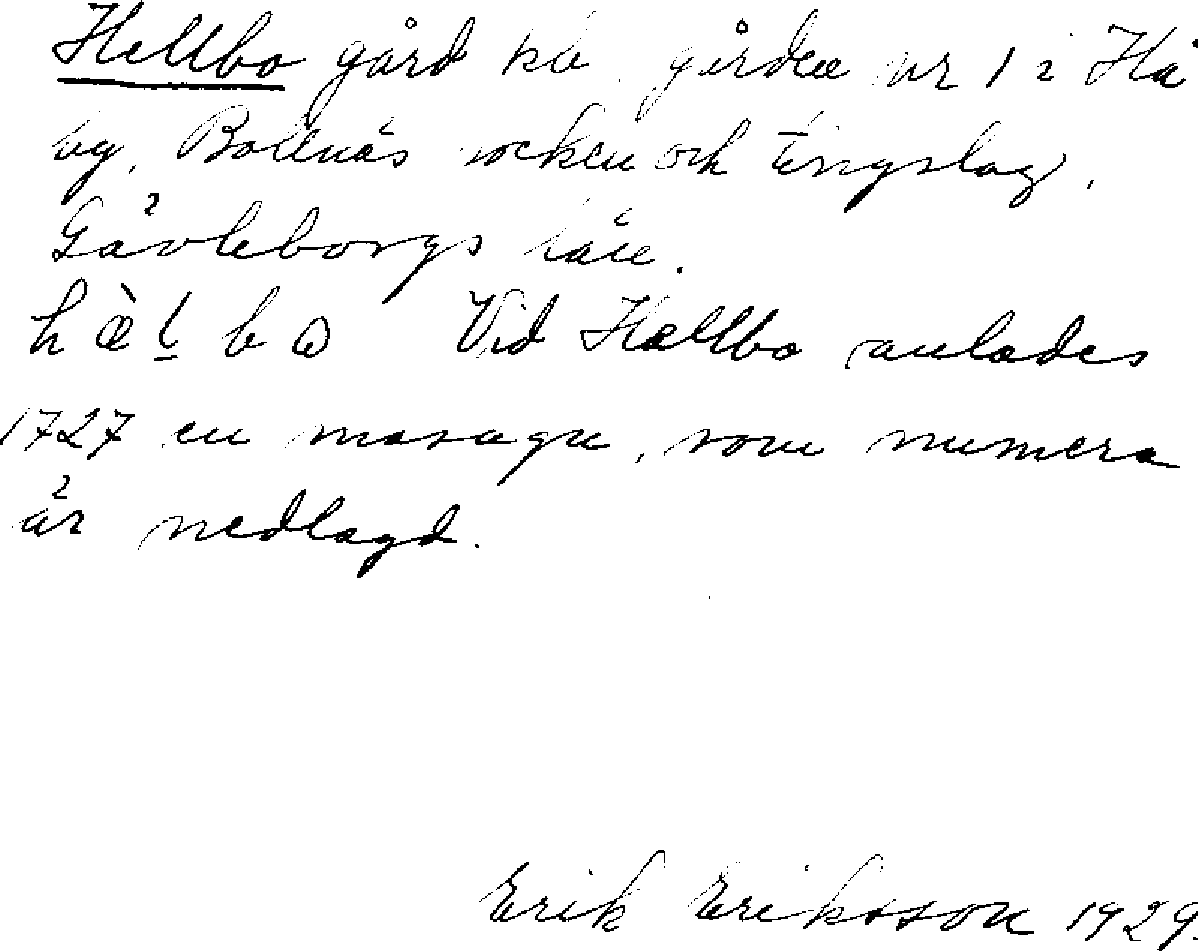 Hellbo gård på gården nr 1 i Hå
by, Bollnäs socken och tingslag,
Gävleborgs län.
Vid Hællbo anlades
1727 en masugn, som numera
är nedlagd.
Erik Eriksson 1929.